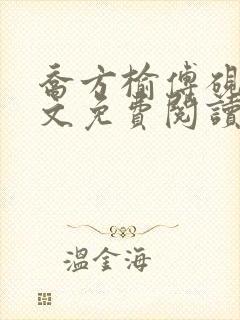 喬方榆傅硯
文免費閱讀
溫金海